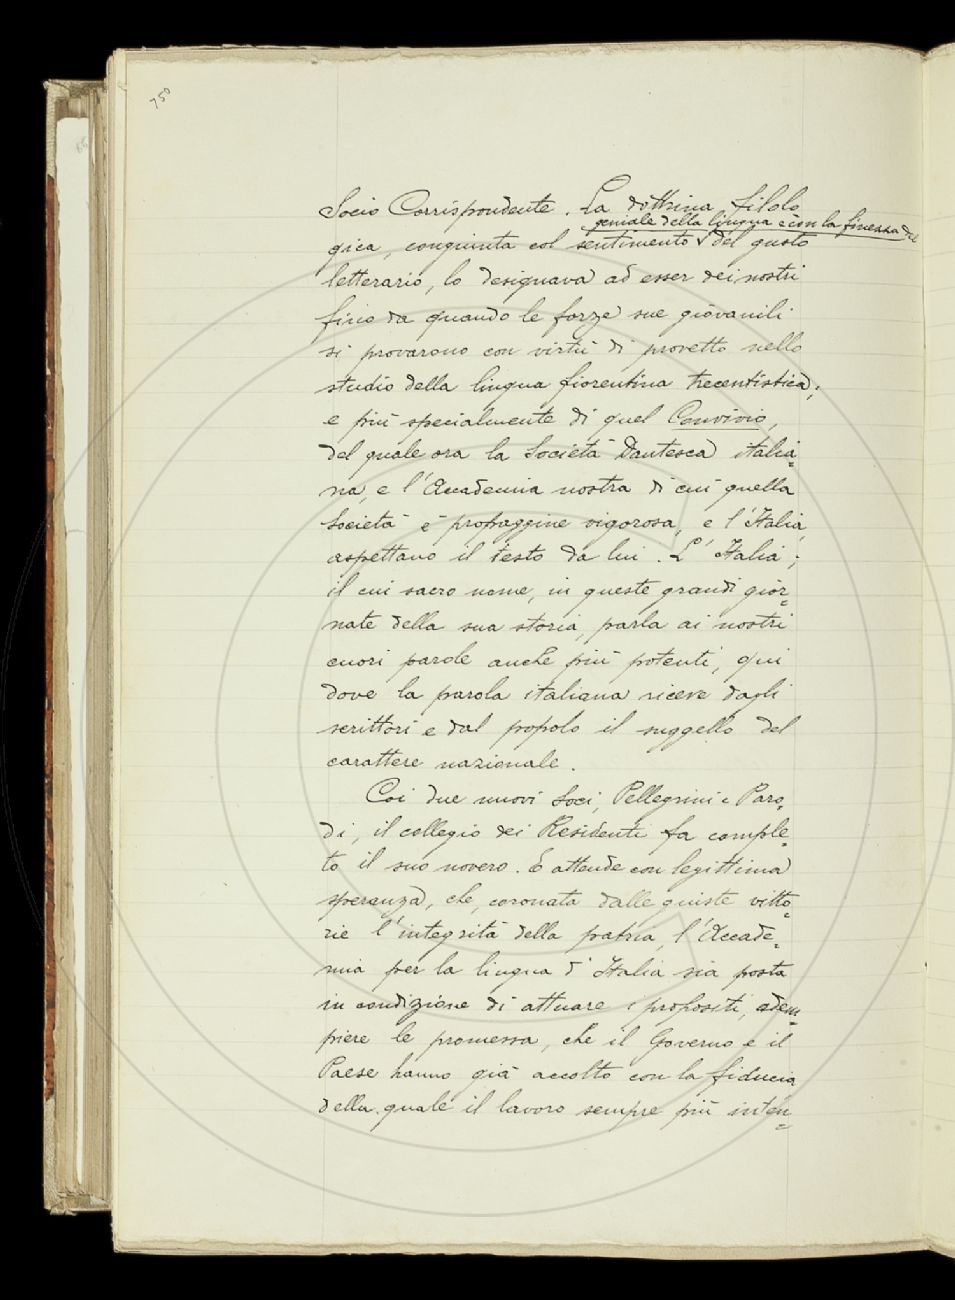 750
Socio Corrispondente. La dottrina filolo
geniale della lingua e con la finezza del
gica, congiunta col sentimento √ del gusto
letterario, lo designava ad esser dei nostri
fino da quando le forze sue giovanili
si provarono con virtù di provetto nello
studio della lingua fiorentina trecentistica;
e più specialmente di quel Convivio,
del quale ora la Società Dantesca italia=
na, e l'Accademia nostra di cui quella
Società è propaggine vigorosa, e l'Italia,
aspettano il testo da lui. L'Italia;
il cui sacro nome, in queste grandi gior=
nate della sua storia, parla ai nostri
cuori parole anche più potenti, qui
dove la parola italiana riceve dagli
scrittori e dal popolo il suggello del
carattere nazionale.
Coi due nuovi Soci, Pellegrini e Paro=
di, il collegio dei Residenti fa comple=
to il suo novero. E attende con legittima
speranza, che, coronata dalle giuste vitto=
rie l'integrità della patria, l'Accade=
mia per la lingua d'Italia sia posta
in condizione di attuare i propositi, adem=
piere le promesse, che il Governo e il
Paese hanno già accolto con la fiducia
della quale il lavoro sempre più inten=